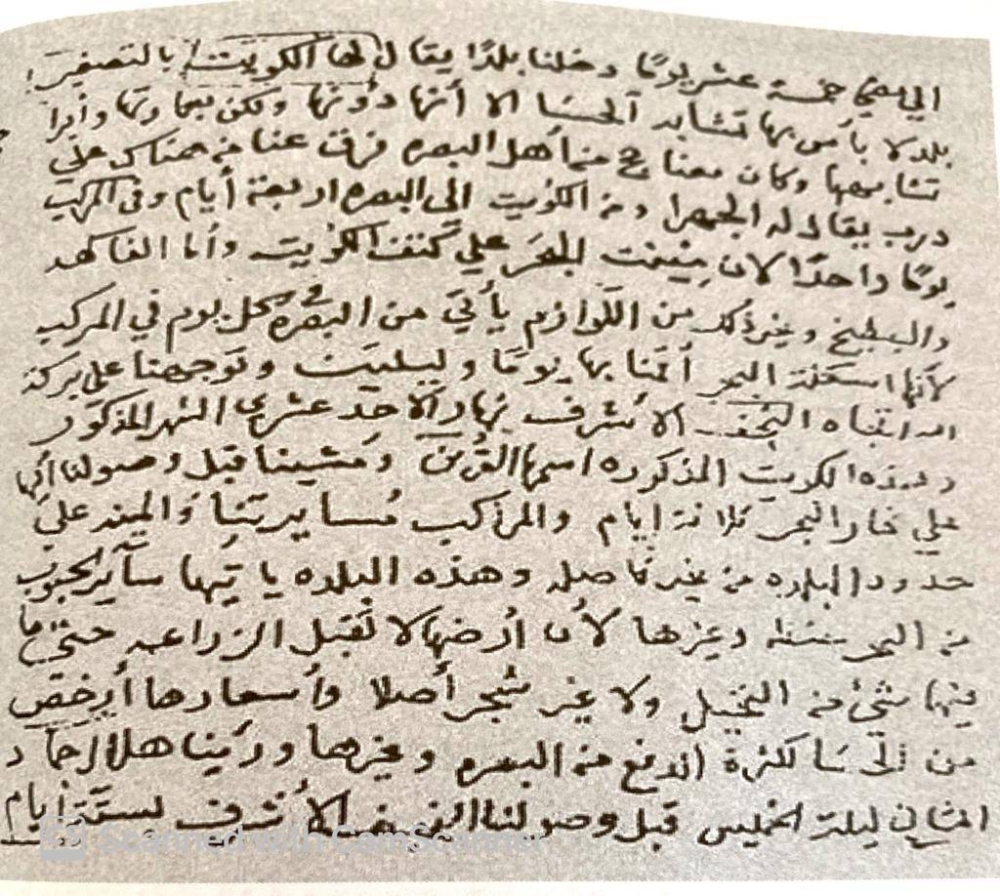 الى مضي خمسة عشر يومًا دخلنا بلدًا يقال لها الكويت بالتصغير
بلد لا بأس بها تشابه الحسا الا أنها دونها ولكن بعمارتها وأبرا
تشابهها وكان معنا حج من أهل البصره فرق عنا من هناك على
درب يقال له الجهرا ومن الكويت الى البصره اربعة أيام وفي المركب
يومًا واحدًا لان البحر على كتف الكويت وأما الفاكهه
والبطيخ وغير ذلك من اللوازم يأتي من البصره في كل يوم في المركب
لأنها اسكلة البحر أقمنا بها يومًا وليلتين وتوجهنا على بركة
الله تجاه النجف الاشرف نهار الاحد عشر في الشهر المذكور
وهذه الكويت المذكوره اسمها القرين ومشينا قبل وصولنا اليها
على غار البحر ثلاثة ايام والمراكب مسايرتنا والمينه على
حدود البلده من غير فاصله وهذه البلده ياتيها ساير الحبوب
من البحر حنطه وغيرها لأن أرضها لا تقبل الزراعه حتى ما
فيها شيء من النخيل ولا غير شجر أصلا وأسعارها أرخص
من الحسا لكثرة الدفع من البصره وغيرها ورأينا هلال جماد
الثاني ليلة الخميس قبل وصولنا النجف الأشرف لستة أيام
Scanned with CamScanner